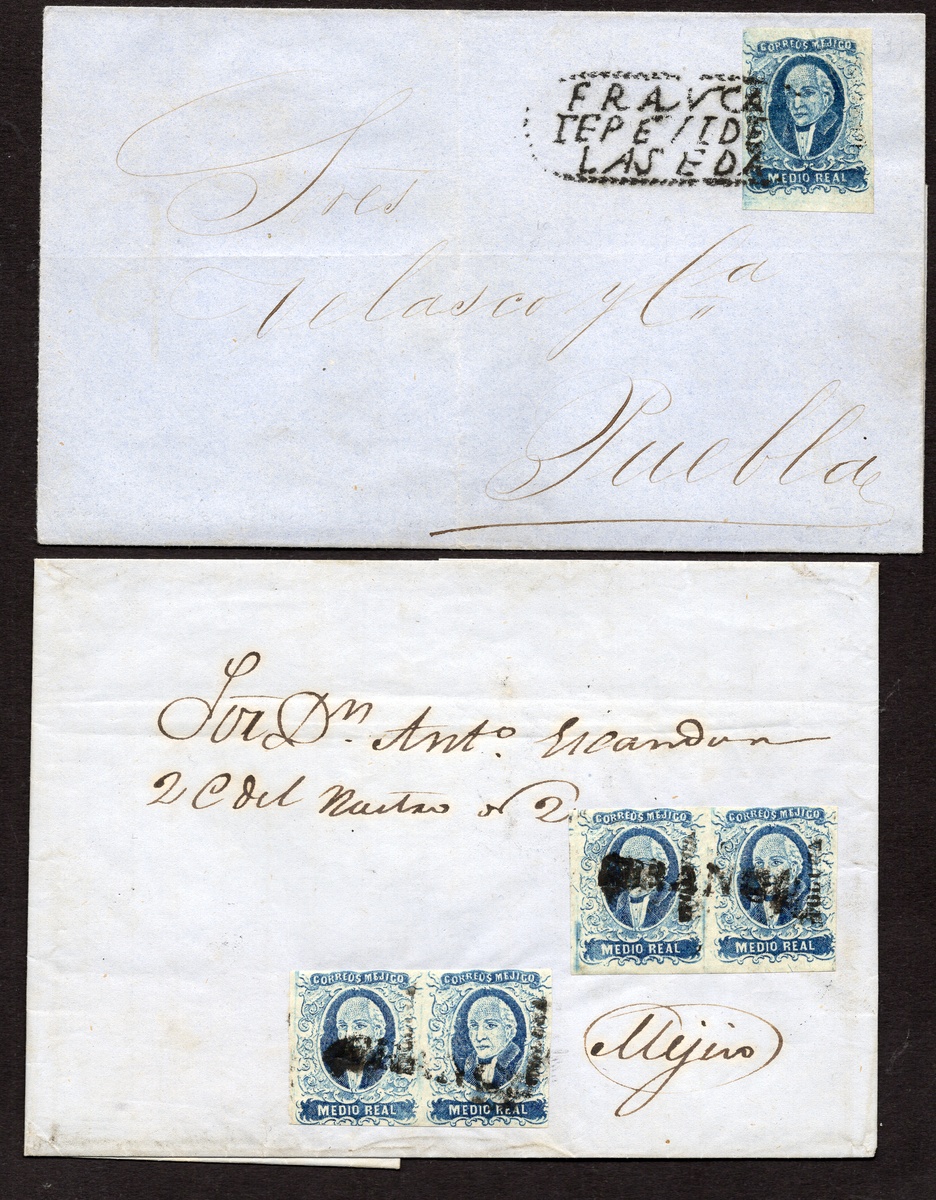 CORREOS MEJICO
FRANCA
TEPEJI DE
LA SEDA
MEDIO REAL
Sres
Velasco y Cª
Puebla
Sor Dn. Anto. Escandon
2 C del
2
CORREOS MEJICO CORREOS MEJICO
FRANCO
MEDIO REAL MEDIO REAL
CORREOS MEJICO CORREOS MEJICO
MEDIO REAL MEDIO REAL
Mejico